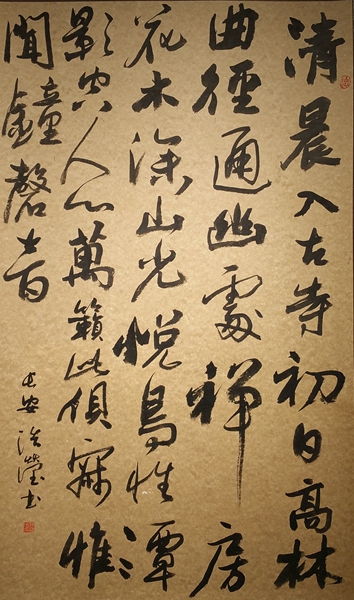 清晨入古寺初日高林
曲徑通幽處禪房
花木深山光悅鳥性潭
影空人心萬籟此俱寂惟
聞鐘磬音
長安浩瑩書